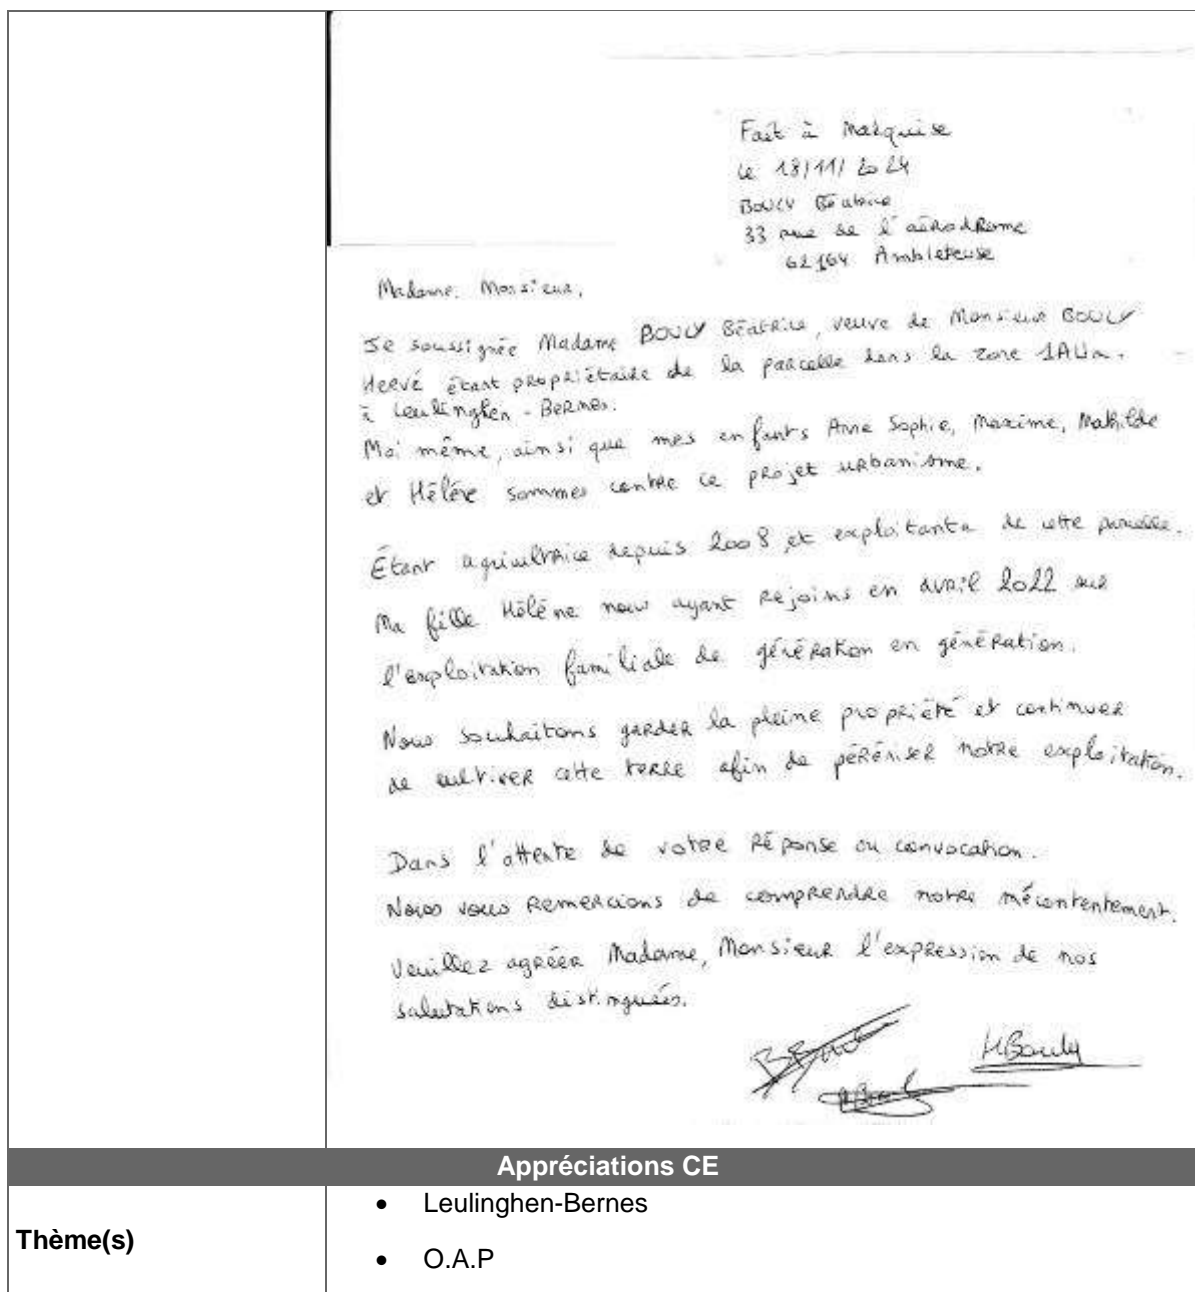 Fait à Marquise
le 18/11/2024
BOULY Béatrice
33 rue de l'aérodRome
62164 Ambleteuse
Madame, Monsieur,
Je soussignée Madame BOULY Béatrice, veuve de Monsieur BOULY
Hervé étant propriétaire de la parcelle dans la zone 1AUa.
à Leulinghen-Bernes.
Moi même, ainsi que mes enfants Anne Sophie, Maxime, Mathilde
et Hélène sommes contre ce projet urbanisme.
Étant agricultrice depuis 2008, et exploitante de cette parcelle.
Ma fille Hélène nous ayant rejoins en avril 2022 sur
l'exploitation familiale de génération en génération.
Nous souhaitons garder la pleine propriété et continuer
de cultiver cette terre afin de péréniser notre exploitation.
Dans l'attente de votre réponse ou convocation.
Nous vous remercions de comprendre notre mécontentement.
Veuillez agréer Madame, Monsieur l'expression de nos
salutations distinguées.
HBouly
Appréciations CE
Thème(s)
• Leulinghen-Bernes
• O.A.P